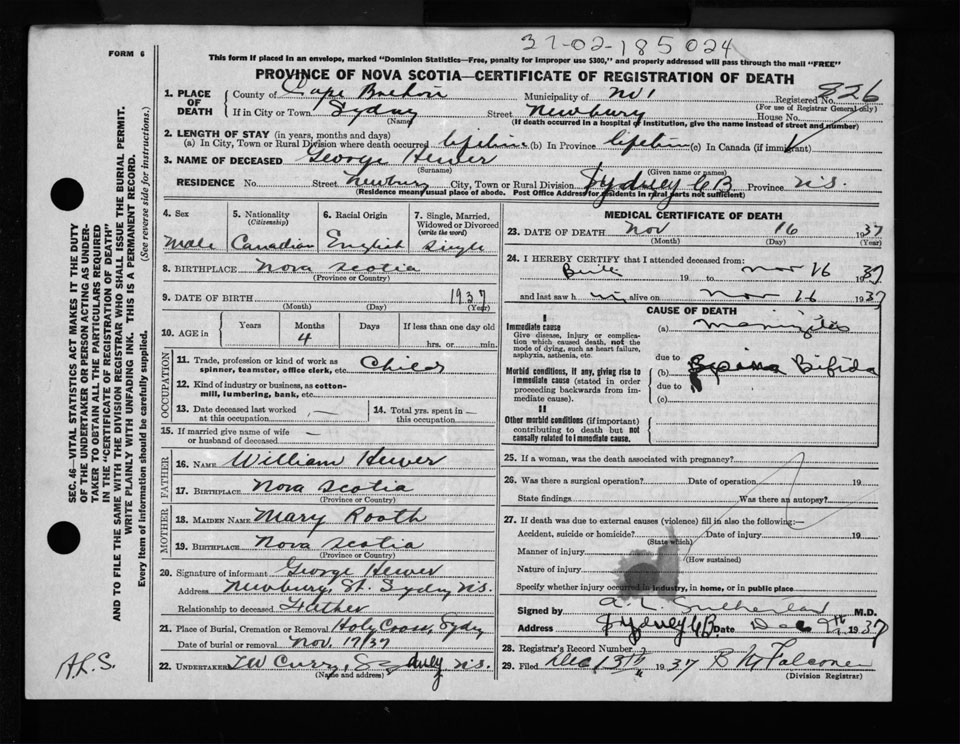 37-02-185024
FORM 6
This form if placed in an envelope, marked "Dominion Statistics—Free, penalty for improper use $300," and properly addressed will pass through the mail "FREE"
PROVINCE OF NOVA SCOTIA—CERTIFICATE OF REGISTRATION OF DEATH
1. PLACE OF DEATH County of Cape Breton Municipality of No 1 Registered No. 826
(For use of Registrar General only)
If in City or Town Sydney Street Newbury House No.
(Name) (If death occurred in a hospital or institution, give the name instead of street and number)
2. LENGTH OF STAY (in years, months and days)
(a) In City, Town or Rural Division where death occurred lifetime (b) In Province lifetime (c) In Canada (if immigrant)
3. NAME OF DECEASED George Hewer
(Surname) (Given name or names)
RESIDENCE No. Street Newbury City, Town or Rural Division Sydney CB Province N.S.
(Residence means usual place of abode. Post Office Address for residents in rural parts not sufficient)
4. Sex 5. Nationality (Citizenship) 6. Racial Origin 7. Single, Married, Widowed or Divorced (write the word)
Male Canadian English Single
8. BIRTHPLACE Nova Scotia
(Province or Country)
9. DATE OF BIRTH 1937
(Month) (Day) (Year)
10. AGE in Years Months Days If less than one day old
4 hrs. or min.
OCCUPATION
11. Trade, profession or kind of work as spinner, teamster, office clerk, etc. Child
12. Kind of industry or business, as cotton-mill, lumbering, bank, etc.
13. Date deceased last worked at this occupation — 14. Total yrs. spent in this occupation —
15. If married give name of wife or husband of deceased —
FATHER
16. NAME William Hewer
17. BIRTHPLACE Nova Scotia
(Province or Country)
MOTHER
18. MAIDEN NAME Mary Rooth
19. BIRTHPLACE Nova Scotia
(Province or Country)
20. Signature of informant George Hewer
Address Newbury St. Sydney N.S.
Relationship to deceased Father
21. Place of Burial, Cremation or Removal Holy Cross, Sydney
Date of burial or removal Nov. 17/37
22. UNDERTAKER TW Curry, Sydney N.S.
(Name and address)
MEDICAL CERTIFICATE OF DEATH
23. DATE OF DEATH Nov 16 1937
(Month) (Day) (Year)
24. I HEREBY CERTIFY that I attended deceased from:
Birth 19 to Nov 16 1937
and last saw him alive on Nov 16 1937
CAUSE OF DEATH
I
Immediate cause
Give disease, injury or complication which caused death, not the mode of dying, such as heart failure, asphyxia, asthenia, etc.
(a) Meningitis
due to
Morbid conditions, if any, giving rise to immediate cause (stated in order proceeding backwards from immediate cause).
(b) Spina Bifida
due to
(c)
II
Other morbid conditions (if important) contributing to death but not causally related to immediate cause.
25. If a woman, was the death associated with pregnancy?
26. Was there a surgical operation? Date of operation 19
State findings Was there an autopsy?
27. If death was due to external causes (violence) fill in also the following:—
Accident, suicide or homicide? Date of injury 19
(State which)
Manner of injury
(How sustained)
Nature of injury
Specify whether injury occurred in industry, in home, or in public place
Signed by A. L. Sutherland M.D.
Address Sydney CB Date Dec 9th 1937
28. Registrar's Record Number
29. Filed Dec 13th 1937 B M Falconer
(Division Registrar)
SEC. 46—VITAL STATISTICS ACT MAKES IT THE DUTY
OF THE UNDERTAKER OR PERSON ACTING AS UNDER-
TAKER TO OBTAIN ALL THE PARTICULARS REQUIRED
IN THE "CERTIFICATE OF REGISTRATION OF DEATH"
AND TO FILE THE SAME WITH THE DIVISION REGISTRAR WHO SHALL ISSUE THE BURIAL PERMIT.
WRITE PLAINLY WITH UNFADING INK. THIS IS A PERMANENT RECORD.
Every item of information should be carefully supplied. (See reverse side for instructions.)
A.R.S.